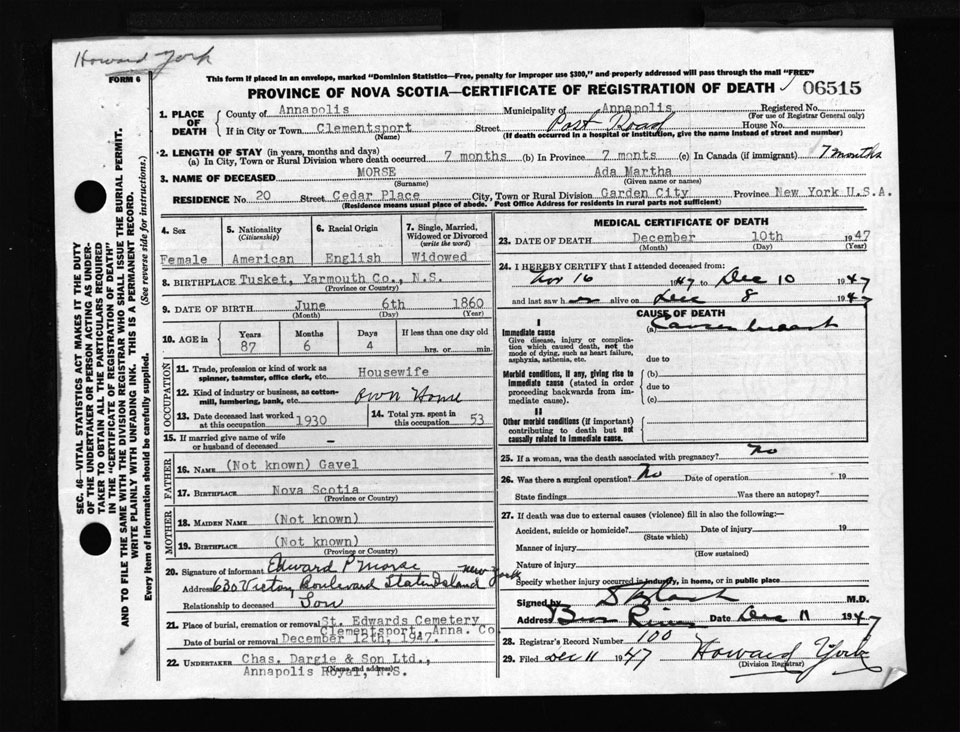 Howard York
FORM 6
This form if placed in an envelope, marked "Dominion Statistics—Free, penalty for improper use $300," and properly addressed will pass through the mail "FREE"
PROVINCE OF NOVA SCOTIA—CERTIFICATE OF REGISTRATION OF DEATH
06515
1. PLACE OF DEATH
County of Annapolis Municipality of Annapolis Registered No.
(For use of Registrar General only)
If in City or Town Clementsport Street Post Road House No.
(Name) (If death occurred in a hospital or institution, give the name instead of street and number)
2. LENGTH OF STAY (in years, months and days)
(a) In City, Town or Rural Division where death occurred 7 months (b) In Province 7 monts (c) In Canada (if immigrant) 7 months
3. NAME OF DECEASED MORSE Ada Martha
(Surname) (Given name or names)
RESIDENCE No. 20 Street Cedar Place City, Town or Rural Division Garden City Province New York U.S.A.
(Residence means usual place of abode. Post Office Address for residents in rural parts not sufficient)
4. Sex
Female
5. Nationality
(Citizenship)
American
6. Racial Origin
English
7. Single, Married, Widowed or Divorced
(write the word)
Widowed
8. BIRTHPLACE Tusket, Yarmouth Co., N.S.
(Province or Country)
9. DATE OF BIRTH June 6th 1860
(Month) (Day) (Year)
10. AGE in Years Months Days If less than one day old
87 6 4 hrs. or min.
OCCUPATION
11. Trade, profession or kind of work as spinner, teamster, office clerk, etc. Housewife
12. Kind of industry or business, as cotton-mill, lumbering, bank, etc. Own Home
13. Date deceased last worked at this occupation 1930
14. Total yrs. spent in this occupation 53
15. If married give name of wife or husband of deceased -
FATHER
16. NAME (Not known) Gavel
17. BIRTHPLACE Nova Scotia
(Province or Country)
MOTHER
18. MAIDEN NAME (Not known)
19. BIRTHPLACE (Not known)
(Province or Country)
20. Signature of informant Edward P Morse
Address 630 Victory Boulevard Staten Island New York
Relationship to deceased Son
21. Place of burial, cremation or removal St. Edwards Cemetery
Clementsport, Anna. Co.
Date of burial or removal December 12th, 1947.
22. UNDERTAKER Chas. Dargie & Son Ltd.,
(Name and address)
Annapolis Royal, N.S.
MEDICAL CERTIFICATE OF DEATH
23. DATE OF DEATH December 10th 1947
(Month) (Day) (Year)
24. I HEREBY CERTIFY that I attended deceased from:
16 1947 to Dec 10 1947
and last saw h alive on Dec 8 1947
CAUSE OF DEATH
I
Immediate cause
Give disease, injury or complication which caused death, not the mode of dying, such as heart failure, asphyxia, asthenia, etc.
(a) Cancer breast
due to
Morbid conditions, if any, giving rise to immediate cause (stated in order proceeding backwards from immediate cause).
(b)
due to
(c)
II
Other morbid conditions (if important) contributing to death but not causally related to immediate cause.
25. If a woman, was the death associated with pregnancy? No
26. Was there a surgical operation? No Date of operation 19
State findings Was there an autopsy?
27. If death was due to external causes (violence) fill in also the following:—
Accident, suicide or homicide? Date of injury 19
(State which)
Manner of injury
(How sustained)
Nature of injury
Specify whether injury occurred in industry, in home, or in public place
Signed by M.D.
Address Bear River Date Dec 11 1947
28. Registrar's Record Number 100
29. Filed Dec 11 1947 Howard York
(Division Registrar)
SEC. 46—VITAL STATISTICS ACT MAKES IT THE DUTY
OF THE UNDERTAKER OR PERSON ACTING AS UNDER-
TAKER TO OBTAIN ALL THE PARTICULARS REQUIRED
IN THE "CERTIFICATE OF REGISTRATION OF DEATH"
AND TO FILE THE SAME WITH THE DIVISION REGISTRAR WHO SHALL ISSUE THE BURIAL PERMIT.
WRITE PLAINLY WITH UNFADING INK. THIS IS A PERMANENT RECORD.
Every item of information should be carefully supplied. (See reverse side for instructions.)